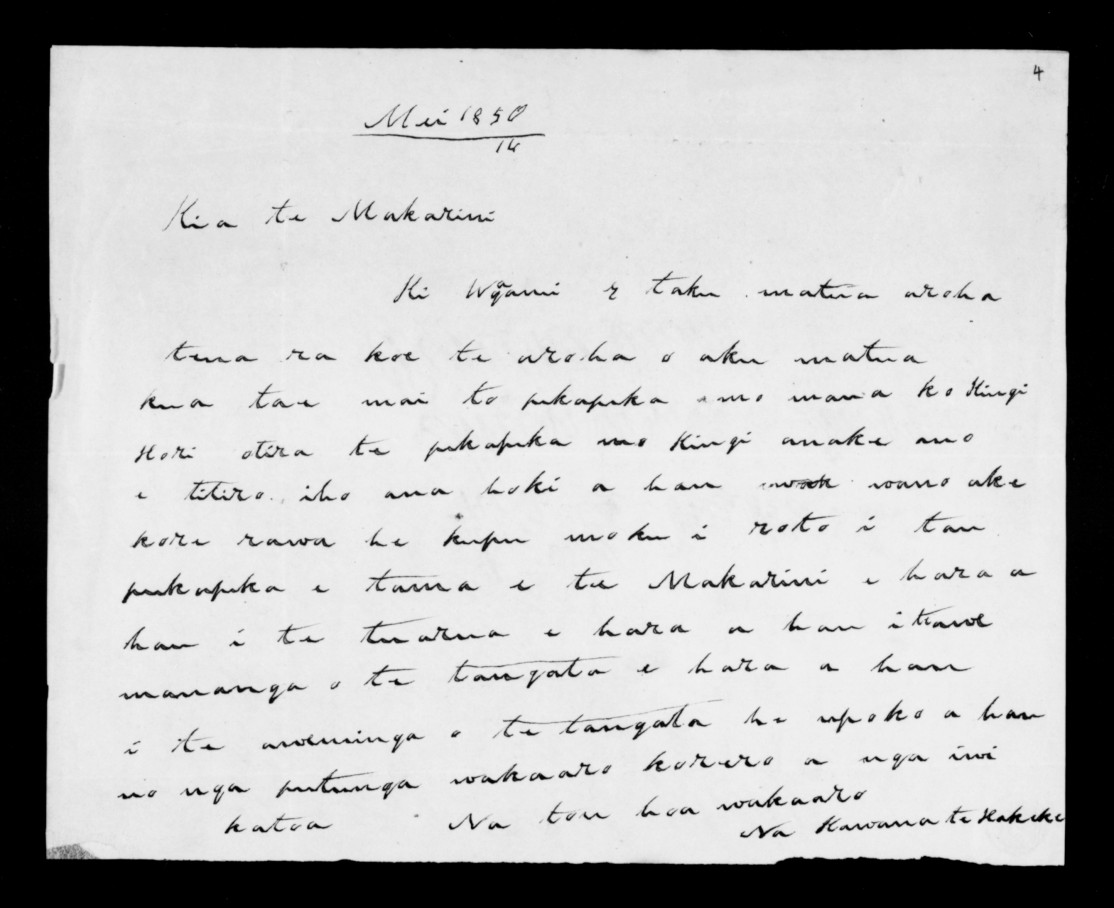 4
Mei 1850
14
Kia te Makarini
Ki Wganui e taku matua aroha
tena ra koe te aroha o aku matua
kua tae mai to pukapuka mo maua ko Kingi
Hori otira te pukapuka mo Kingi anake ano
e titiro iho ana hoki a hau wano ake
kore rawa he kupu moku i roto i tau
pukapuka e tama e te Makarini e hara a
hau i te tuarua e hara a hau i te awe
mananga o te tangata e hara a hau
i te aweminga o te tangata he upoko a hau
no nga putunga wakaaro korero a nga iwi
katoa Na tou hoa wakaaro
Na Kawana te Hakeke